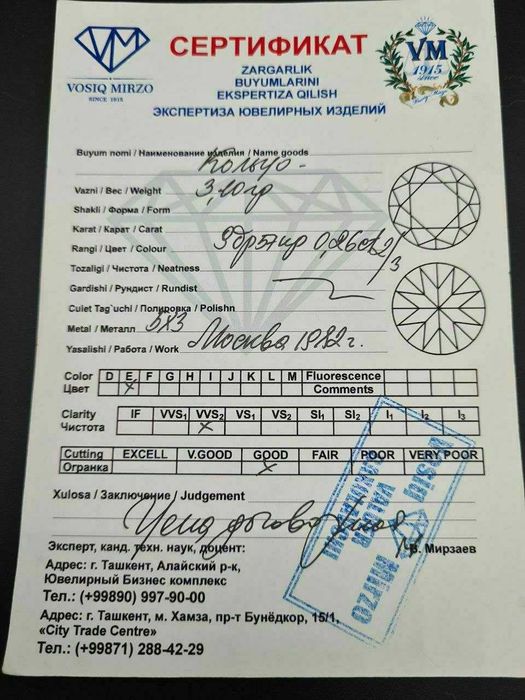 VM
VOSIQ MIRZO
SINCE 1915
СЕРТИФИКАТ
ZARGARLIK
BUYUMLARINI
EKSPERTIZA QILISH
ЭКСПЕРТИЗА ЮВЕЛИРНЫХ ИЗДЕЛИЙ
VM
1915
since
Buyum nomi / Наименование изделия / Name goods Кольцо -
Vazni / Вес / Weight 3,10гр
Shakli / Форма / Form
Karat / Карат / Carat
Rangi / Цвет / Colour
Tozaligi / Чистота / Neatness
Gardishi / Рундист / Rundist
Cuiet Tag'uchi / Полировка / Polishn
Metal / Металл 583
Yasalishi / Работа / Work Москва 1982 г.
Color D E F G H I J K L M Fluorescence
Цвет X Comments
Clarity IF VVS1 VVS2 VS1 VS2 SI1 SI2 I1 I2 I3
Чистота X
Cutting EXCELL V.GOOD GOOD FAIR POOR VERY POOR
Огранка X
Xulosa / Заключение / Judgement
Цена договорная
Эксперт, канд. техн. наук, доцент: В. Мирзаев
Адрес: г. Ташкент, Алайский р-к,
Ювелирный Бизнес комплекс
Тел.: (+99890) 997-90-00
Адрес: г. Ташкент, м. Хамза, пр-т Бунёдкор, 15/1,
«City Trade Centre»
Тел.: (+99871) 288-42-29
VOSIQ MIRZO